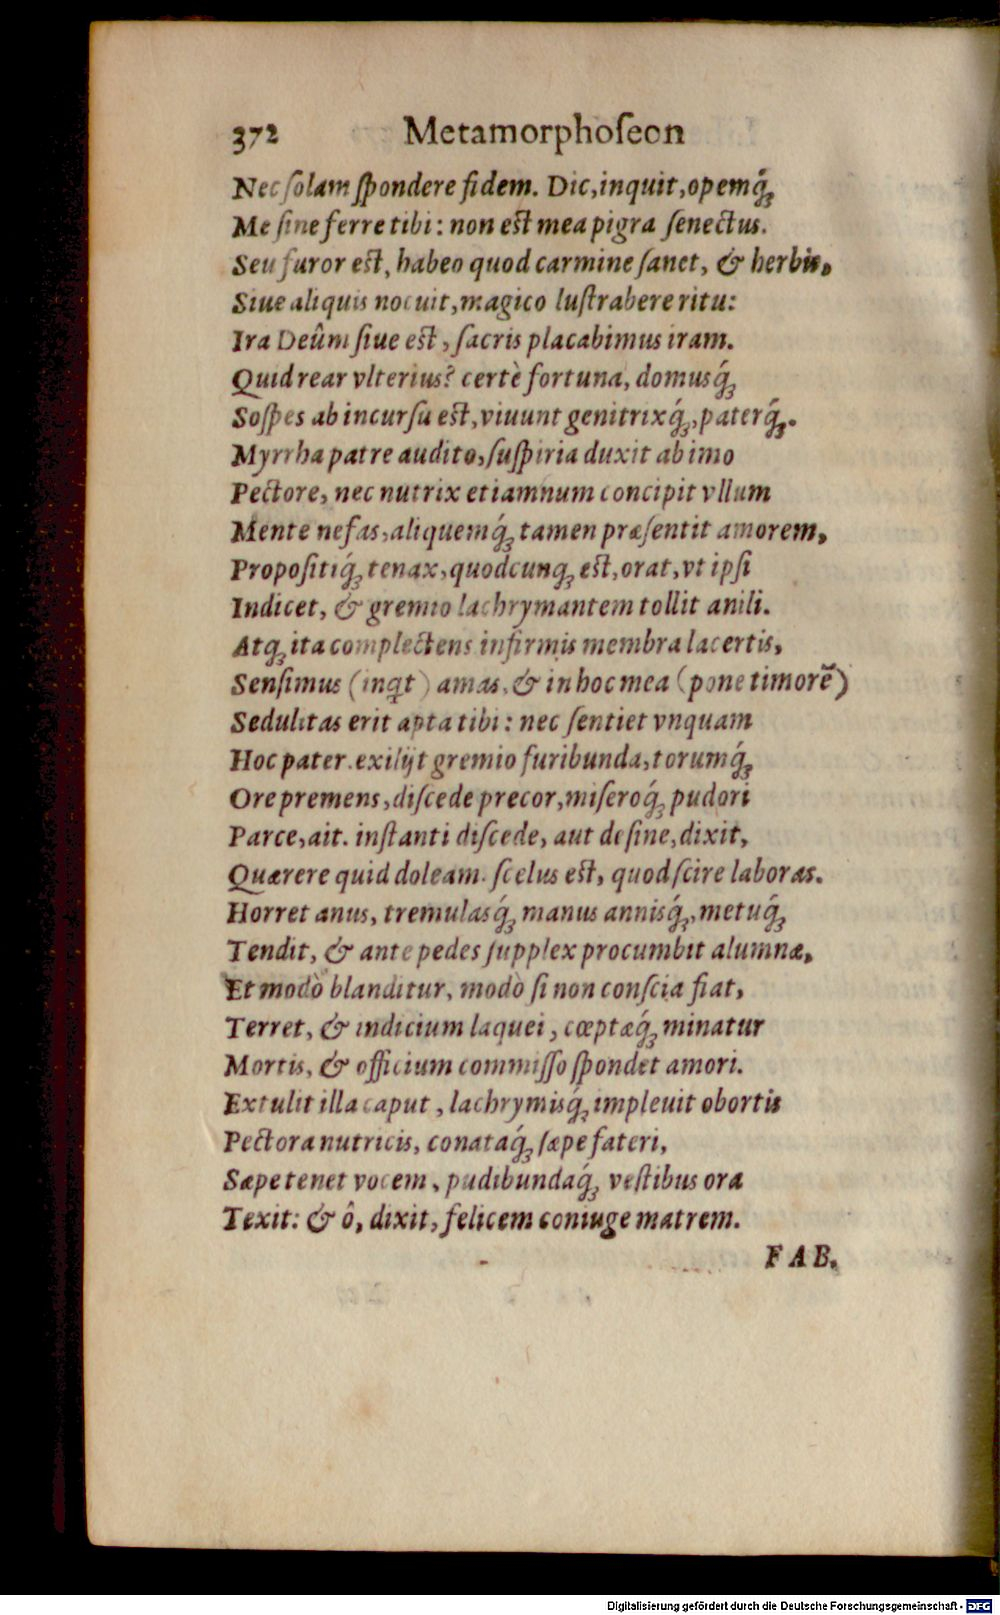 372 Metamorphoſeon
Nec ſolam ſpondere fidem. Dic, inquit, opemq́;
Me ſine ferre tibi: non est mea pigra ſenectus.
Seu furor est, habeo quod carmine ſanet, & herbis,
Siue aliquis nocuit, magico luſtrabere ritu:
Ira Deûm ſiue est, ſacris placabimus iram.
Quid rear vlterius? certè fortuna, domusq́;
Soſpes ab incurſu est, viuunt genitrixq́;, paterq́;.
Myrrha patre audito, ſuſpiria duxit ab imo
Pectore, nec nutrix etiamnum concipit vllum
Mente nefas, aliquemq́; tamen præſentit amorem,
Propoſitiq́; tenax, quodcunq; est, orat, vt ipſi
Indicet, & gremio lachrymantem tollit anili.
Atq; ita complectens infirmis membra lacertis,
Senſimus (inqt) amas, & in hoc mea (pone timorẽ)
Sedulitas erit apta tibi: nec ſentiet vnquam
Hoc pater. exilijt gremio furibunda, torumq́;
Ore premens, diſcede precor, miſeroq́; pudori
Parce, ait. inſtanti diſcede, aut deſine, dixit,
Quærere quid doleam. ſcelus est, quod ſcire laboras.
Horret anus, tremulasq́; manus annisq́;, metuq́;
Tendit, & ante pedes ſupplex procumbit alumnæ,
Et modò blanditur, modò ſi non conſcia fiat,
Terret, & indicium laquei, cœptæq́; minatur
Mortis, & officium commiſſo ſpondet amori.
Extulit illa caput, lachrymisq́; impleuit obortis
Pectora nutricis, conataq́; ſæpe fateri,
Sæpe tenet vocem, pudibundaq́; veſtibus ora
Texit: & ô, dixit, felicem coniuge matrem.
FAB.
Digitalisierung gefördert durch die Deutsche Forschungsgemeinschaft - DFG